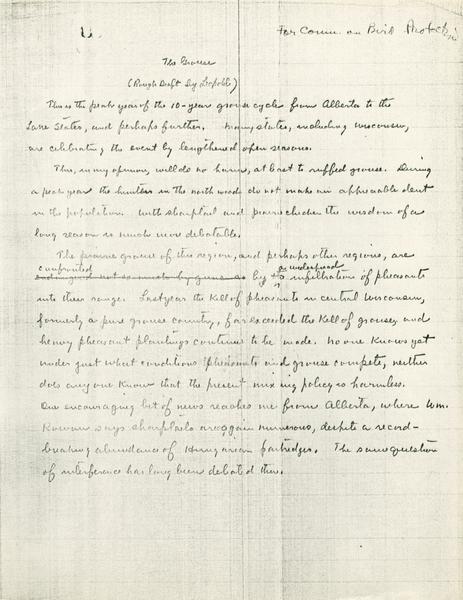 For Comm. on Bird Protection
The Grouse
(Rough Draft by Leopold)
This is the peak year of the 10-year grouse cycle from Alberta to the
Lake States, and perhaps further. Many states, including Wisconsin,
are celebrating the event by lengthened open seasons.
This, in my opinion, will do no harm, at least to ruffed grouse. During
a peak year the hunters in the north woods do not make an appreciable dent
in the population. With sharptail and prairie chicken the wisdom of a
long season is much more debatable.
The prairie grouse of this region, and perhaps other regions, are
confronted a widespread
endangered not so much by guns as by the infiltration of pheasants
into their range. Last year the kill of pheasants in central Wisconsin,
formerly a pure grouse country, far exceeded the kill of grouse, and
heavy pheasant plantings continue to be made. No one knows yet
under just what conditions pheasants and grouse compete, neither
does anyone know that the present mixing policy is harmless.
One encouraging bit of news reaches me from Alberta, where Wm.
Rowan says sharptails are again numerous, despite a record-
breaking abundance of Hungarian partridges. The same question
of interference has long been debated there.